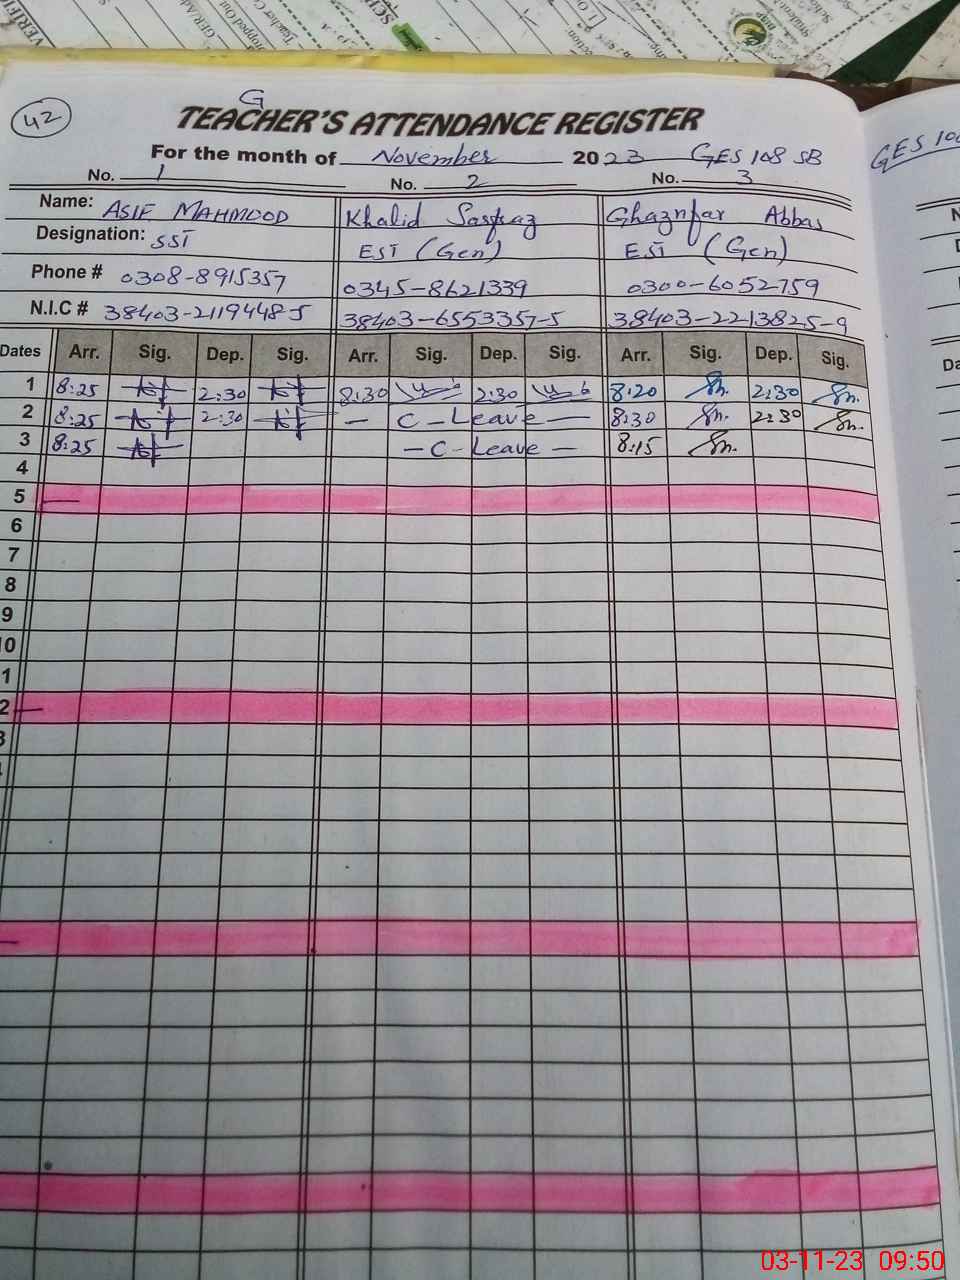 42
G
TEACHER'S ATTENDANCE REGISTER
For the month of November 2023 GES 108 SB
No. 1 No. 2 No. 3
Name: ASIF MAHMOOD Khalid Sarfraz Ghaznfar Abbas
Designation: SST EST (Gen) EST (Gen)
Phone # 0308-8915357 0345-8621339 0300-6052759
N.I.C # 38403-2119448-5 38403-6553357-5 38403-2213825-9
Dates Arr. Sig. Dep. Sig. Arr. Sig. Dep. Sig. Arr. Sig. Dep. Sig.
1 8:25 2:30 8:30 2:30 8:20 2:30
2 8:25 2:30 — C-Leave — 8:30 2:30
3 8:25 — C-Leave — 8:15
4
5
6
7
8
9
10
1
2
3
GES
03-11-23 09:50